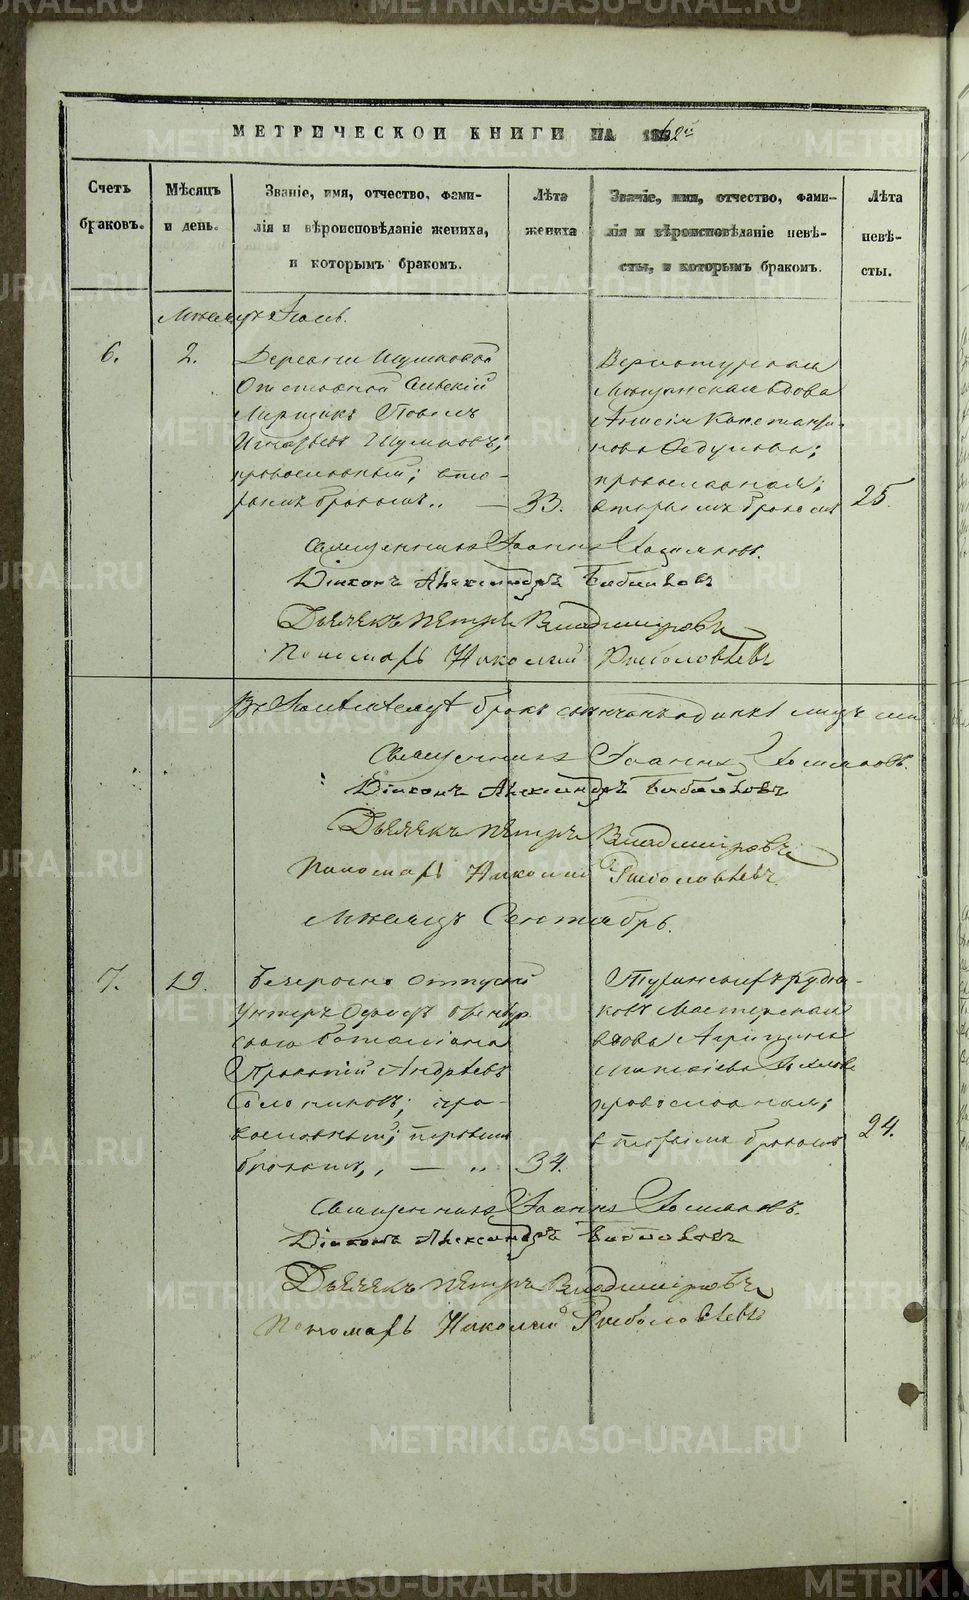 МЕТРИЧЕСКОЙ КНИГИ НА 1862й
Счетъ браковъ.
Мѣсяцъ и день.
Званіе, имя, отчество, фами-
лія и вѣроисповѣданіе жениха,
и которымъ бракомъ.
Лѣта жениха
Званіе, имя, отчество, фами-
лія и вѣроисповѣданіе невѣ-
сты, и которымъ бракомъ.
Лѣта невѣ-
сты.
Мѣсяцъ
6.
2.
Деревни
Отставной
Павелъ
православный; вто-
рымъ бракомъ
33.
Верхотурская
Мѣщанская вдова
Анисія Константи-
нова Федулова;
православная;
вторымъ бракомъ
25.
Священникъ Іоаннъ
Діаконъ Александръ Бибиковъ
Дьячекъ Петръ Владиміровъ
Пономарь Николай Рыболовлевъ
бракъ
Священникъ Іоаннъ
Діаконъ Александръ Бибиковъ
Дьячекъ Петръ Владиміровъ
Пономарь Николай Рыболовлевъ
Мѣсяцъ Сентябрь.
7.
19.
Безсрочно отпускной
Унтеръ Офицеръ Оренбур
скаго баталіона
Прокопій Андреевъ
пра-
вославный; первымъ
бракомъ,
34.
рудни-
ковъ Мастерская
вдова
православная;
вторымъ бракомъ
24.
Священникъ Іоаннъ
Діаконъ Александръ Бибиковъ
Дьячекъ Петръ Владиміровъ
Пономарь Николай Рыболовлевъ
METRIKI.GASO-URAL.RU